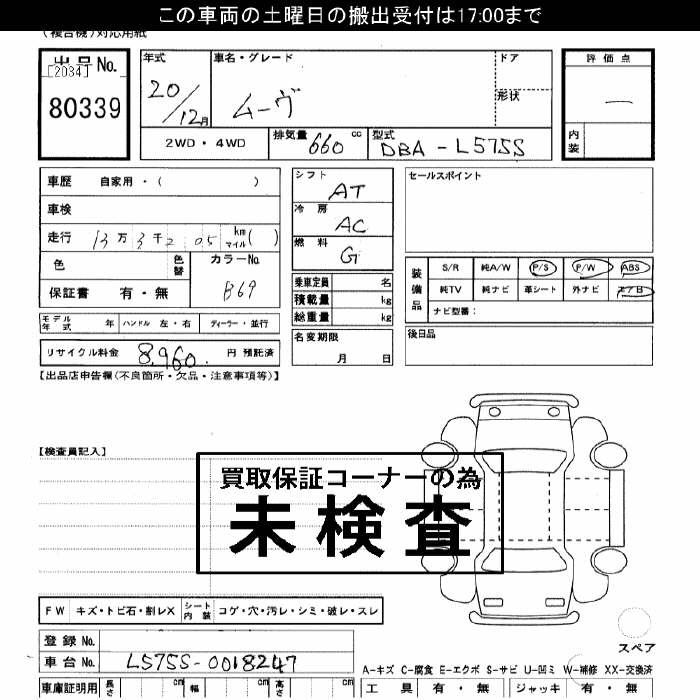 この車両の土曜日の搬出受付は17:00まで
(複合機)対応用紙
出品No.
[2034]
80339
年式
20/12月
車名・グレード
ムーヴ
ドア
形状
評価点
—
内装
2WD・4WD
排気量 660 cc
型式 DBA-L575S
車歴 自家用・( )
車検
走行 13万3千2 05 km マイル( )
色
色替
カラーNo. B69
保証書 有・無
モデル年式 年 ハンドル 左・右 ディーラー・並行
リサイクル料金 8,960 円 預託済
シフト AT
冷房 AC
燃料 G
乗車定員 名
積載量 kg
総重量 kg
名変期限 月 日
セールスポイント
装備品
S/R 純A/W P/S P/W ABS
純TV 純ナビ 革シート 外ナビ エアB
ナビ型番:
後日品
【出品店申告欄(不良箇所・欠品・注意事項等)】
【検査員記入】
買取保証コーナーの為
未検査
FW キズ・トビ石・割レX シート内装 コゲ・穴・汚レ・シミ・破レ・スレ
登録No.
車台No. L575S-0018247
スペア
A-キズ C-腐食 E-エクボ S-サビ U-凹ミ W-補修 XX-交換済
車庫証明用 長さ cm 幅 cm 高さ cm
工具 有・無 ジャッキ 有・無